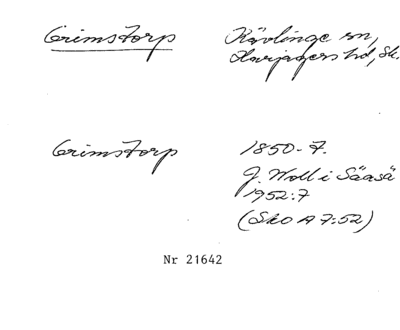 Grimstorp
Kävlinge sn,
Harjagers hd, Sk.
Grimstorp
1850-t.
J. Woll i Säxå
1952:7
(Sko A 7:52)
Nr 21642